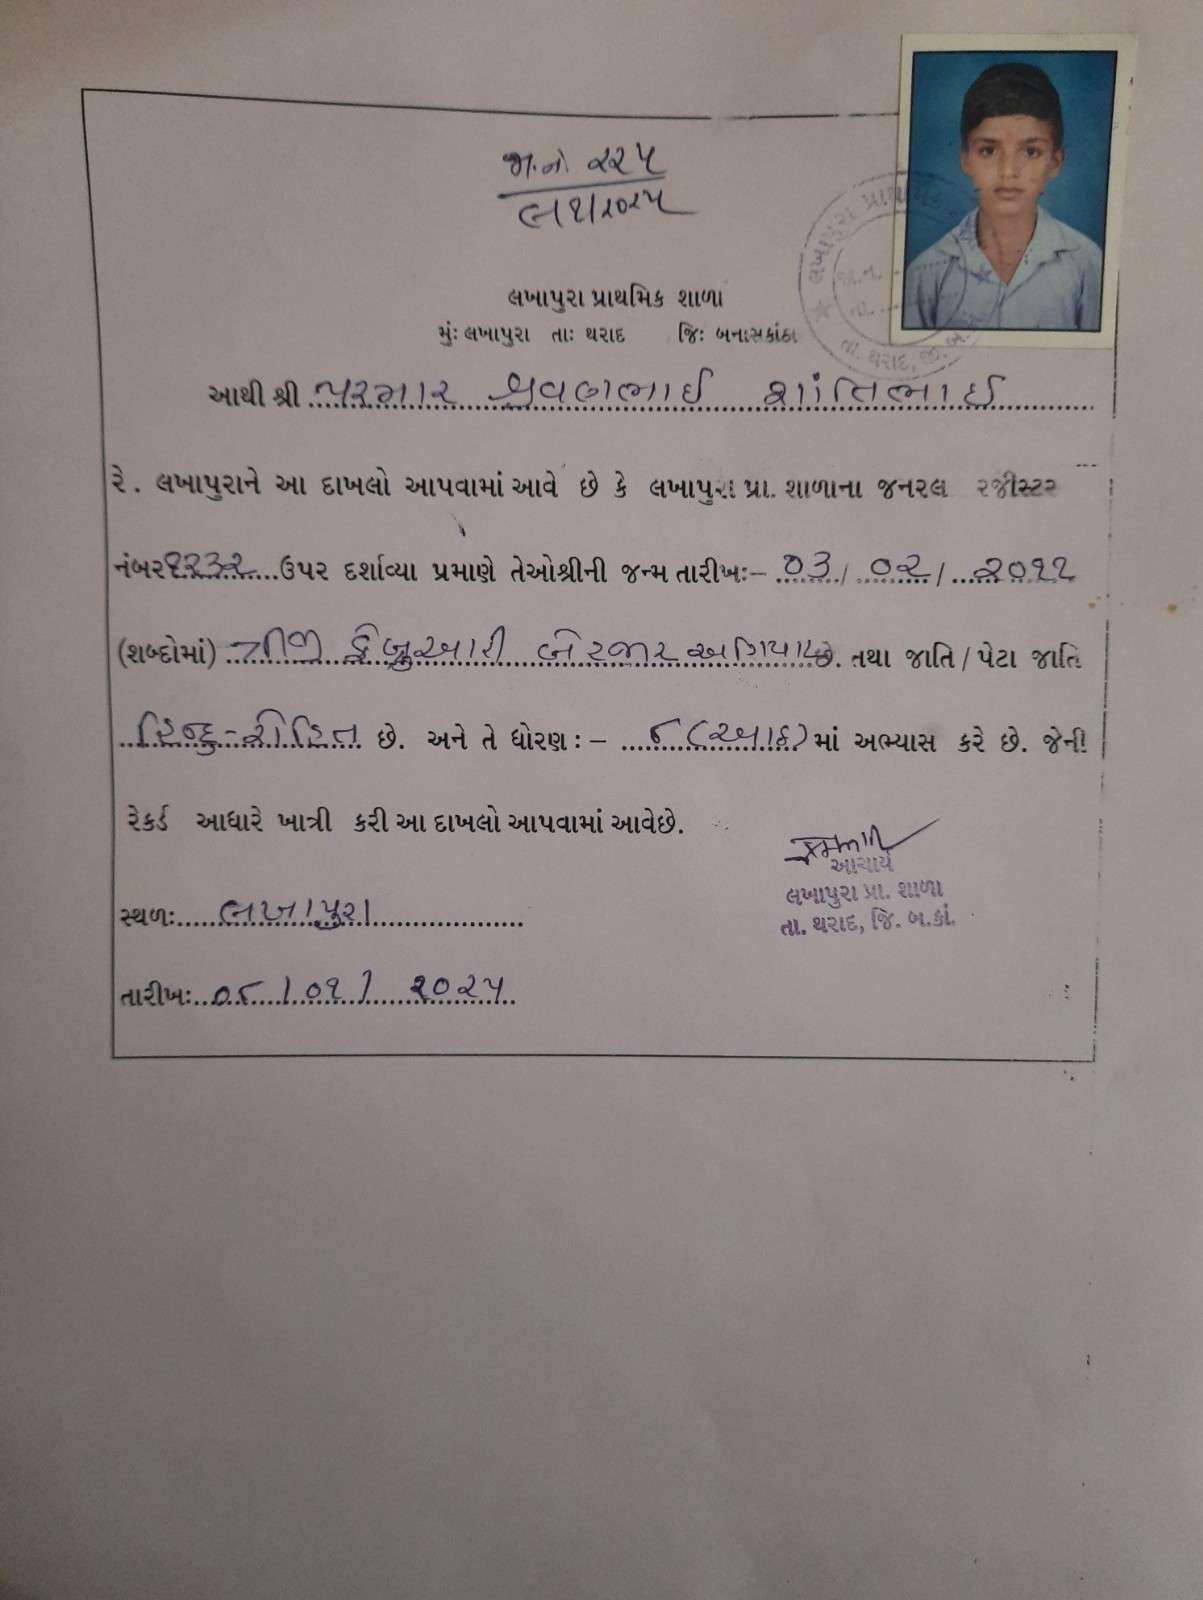 જા.નં. ૨૨૫
લપ્રા/૨૦૨૫
લખાપુરા પ્રાથમિક શાળા
મુંઃ લખાપુરા તાઃ થરાદ જિઃ બનાસકાંઠા
લખાપુરા પ્રાથમિક
જા.ન. ........
તા. ........
તા. થરાદ, જી. બ.
આથી શ્રી પરમાર શ્રવણભાઈ શાંતિભાઈ
રે. લખાપુરાને આ દાખલો આપવામાં આવે છે કે લખાપુરા પ્રા. શાળાના જનરલ રજીસ્ટર
નંબર ૧૨૩૨ ઉપર દર્શાવ્યા પ્રમાણે તેઓશ્રીની જન્મ તારીખઃ- ૦૩ / ૦૨ / ૨૦૧૧
(શબ્દોમાં) ત્રીજી ફેબ્રુઆરી બે હજાર અગિયાર છે. તથા જાતિ / પેટા જાતિ
હિન્દુ-રોહિત છે. અને તે ધોરણ ઃ – ૮ (આઠ) માં અભ્યાસ કરે છે. જેની
રેકર્ડ આધારે ખાત્રી કરી આ દાખલો આપવામાં આવેછે.
આચાર્ય
લખાપુરા પ્રા. શાળા
તા. થરાદ, જિ. બ.કાં.
સ્થળઃ લખાપુરા
તારીખઃ ૦૮ / ૦૧ / ૨૦૨૫